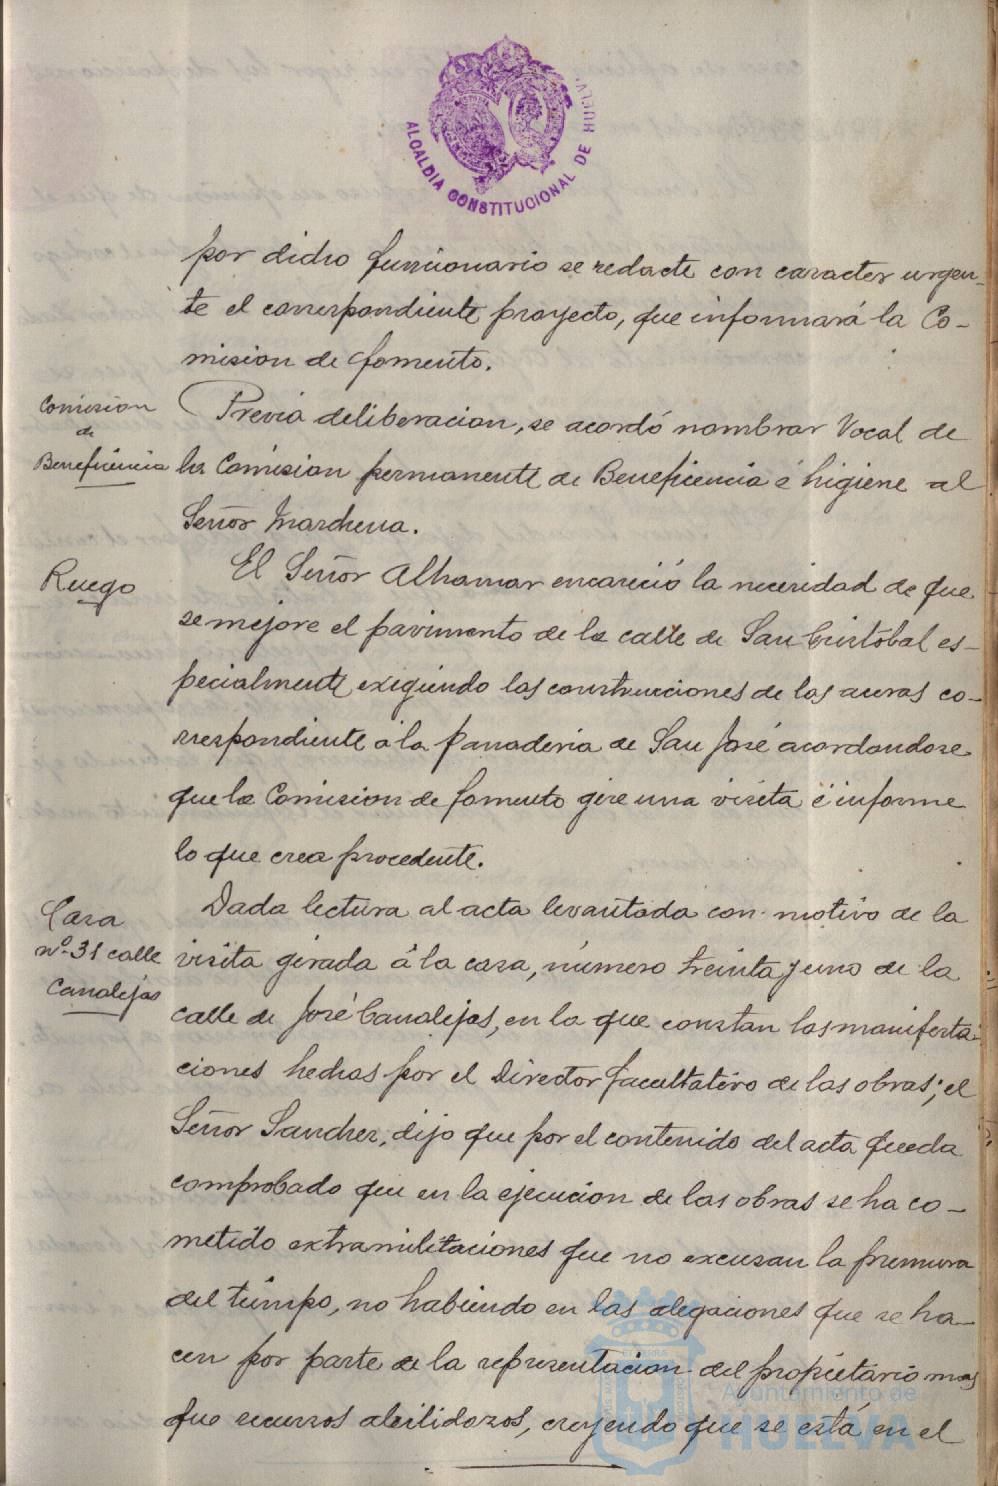 ALCALDIA CONSTITUCIONAL DE HUELVA
por dicho funcionario se redacte con caracter urgen-
te el correspondiente proyecto, que informará la Co-
mision de fomento.
Comision
de
Beneficencia
Previa deliberacion, se acordó nombrar Vocal de
la Comision permanente de Beneficencia é higiene al
Señor Marchena.
Ruego
El Señor Alhamar encareció la necesidad de que
se mejore el pavimento de la calle de San Cristobal es-
pecialmente exigiendo las construcciones de las aceras co-
rrespondiente á la Panaderia de San José acordandose
que la Comision de fomento gire una visita é informe
lo que crea procedente.
Casa
nº 31 calle
Canalejas
Dada lectura al acta levantada con motivo de la
visita girada á la casa, número treinta y uno de la
calle de José Canalejas, en la que constan las manifesta-
ciones hechas por el Director facultativo de las obras; el
Señor Sanchez, dijo que por el contenido del acta queda
comprobado que en la ejecucion de las obras se ha co-
metido extramilitaciones que no excusan la premura
del tiempo, no habiendo en las alegaciones que se ha-
cen por parte de la representacion del propietario mas
que recursos abilidosos, creyendo que se está en el
Ayuntamiento de
HUELVA